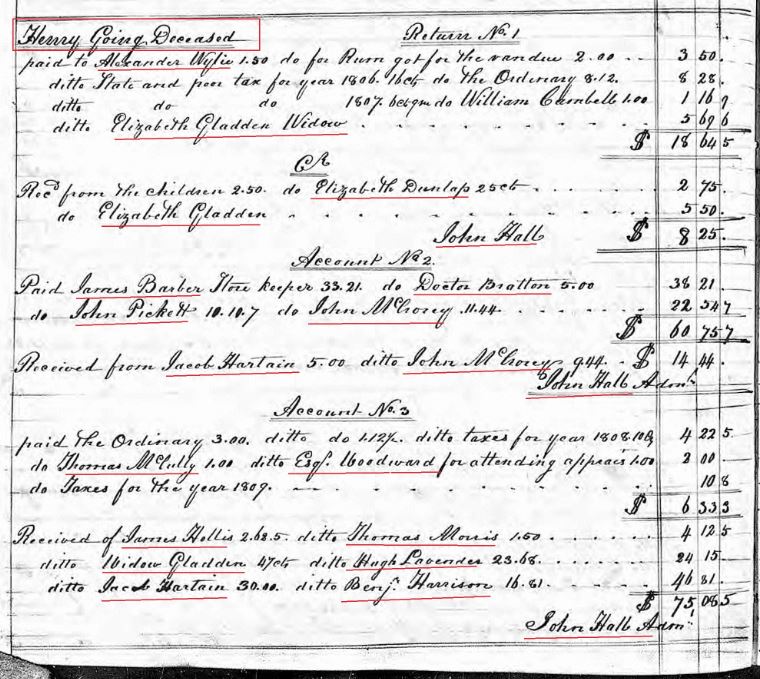 Henry Going Deceased Return No. 1
paid to Alexander Wylie 1.50 do for Rum got for the vandue 2.00 3 50.
ditto State and poor tax for year 1806. 16cts do the Ordinary 8.12. 8 28.
ditto do do 1807. do William Cambell 1.00 1 16
ditto Elizabeth Gladden Widow 5 69 6
$ 18 64 5
Cr
Recd from the children 2.50. do Elizabeth Dunlap 25cts 2 75
do Elizabeth Gladden 5 50
John Hall $ 8 25
Account No 2.
Paid James Barber Store keeper 33.21. do Doctor Bratton 5.00 38 21
do John Pickett 10.10.7 do John McCrorey 11.44 22 54 7
$ 60 75 7
Received from Jacob Hartain 5.00 ditto John McCrorey 9.44 $ 14 44
John Hall Admr
Account No. 3
paid the Ordinary 3.00. ditto do 1.12½ ditto taxes for year 1808. 4 22 5
do Thomas McCully 1.00 ditto Esqr. Woodward for attending apprais 1.00 2 00
do Taxes for the year 1809. 10 8
$ 6 33 3
Received of James Hollis 2.62.5. ditto Thomas Morris 1.50 4 12 5
ditto Widow Gladden 47cts ditto Hugh Lavender 23.68. 24 15
ditto Jacob Hartain 30.00. ditto Benj. Harrison 16.81. 46 81
$ 75 08 5
John Hall Admr